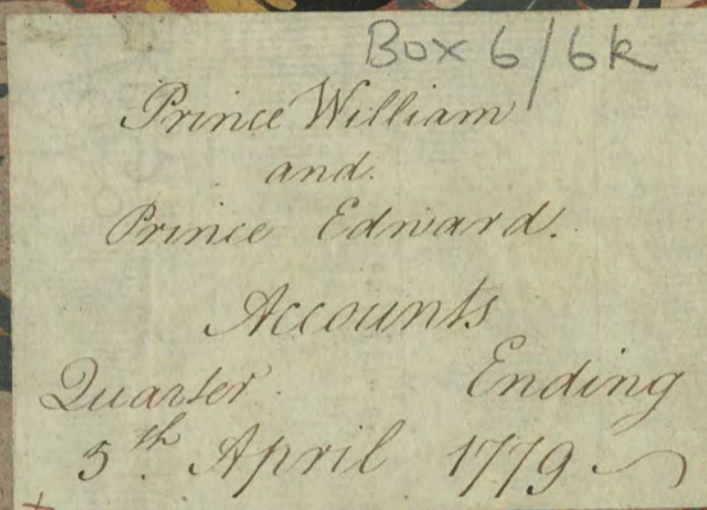 Box 6/6k
Prince William
and
Prince Edward.
Accounts
Quarter Ending
5th April 1779